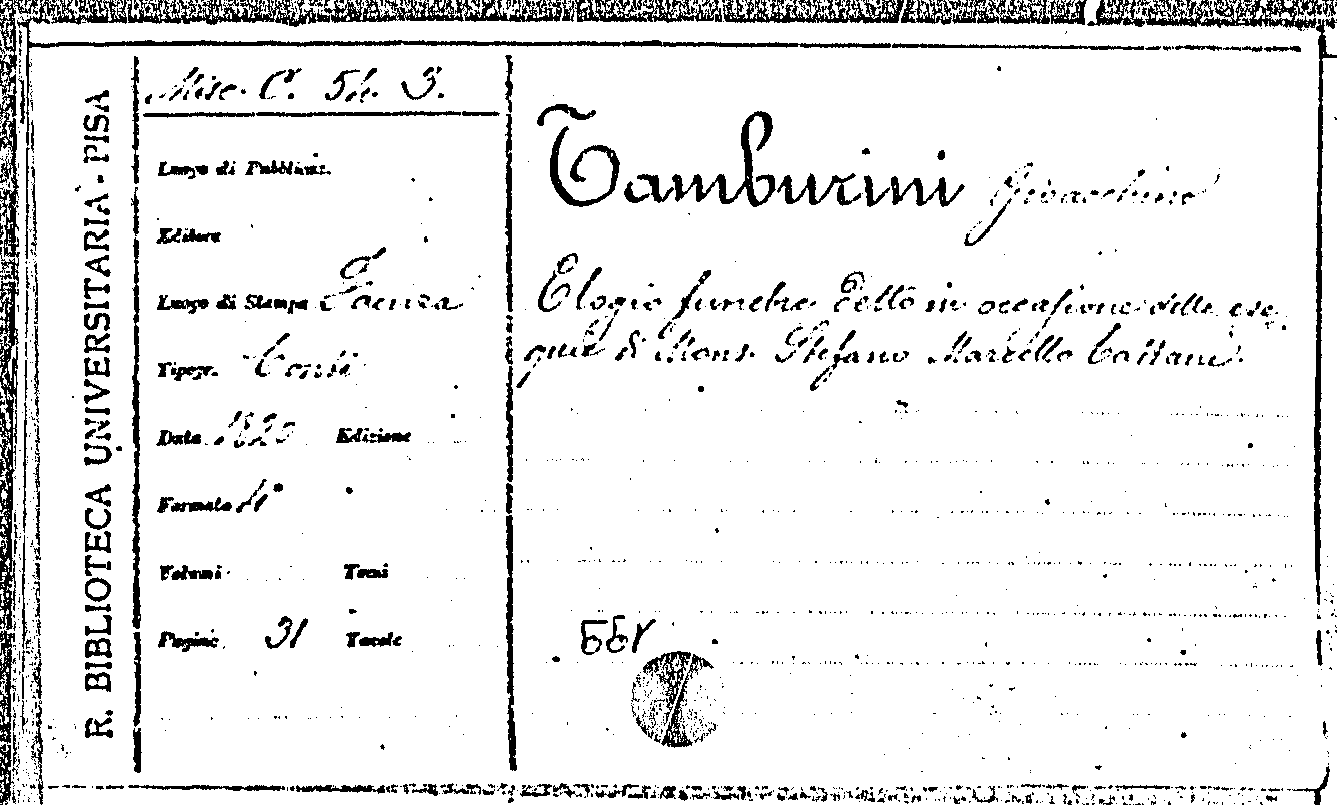 R. BIBLIOTECA UNIVERSITARIA - PISA
Misc. C. 54. 3.
Luogo di Pubblicaz.
Editore
Luogo di Stampa Faenza
Tipogr. Conti
Data 1820 Edizione
Formato 4°
Volumi Tomi
Pagine 31 Tavole
Tamburini Gioacchino
Elogio funebre detto in occasione delle ese-
quie di Mons. Stefano Marcello Cattani.